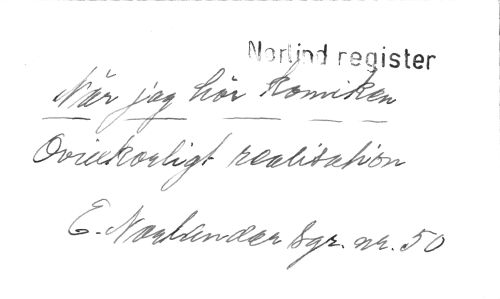 Norlind register
När jag hör komiken
Oviekorligt realisation
E. Norlander Sgr. nr. 50